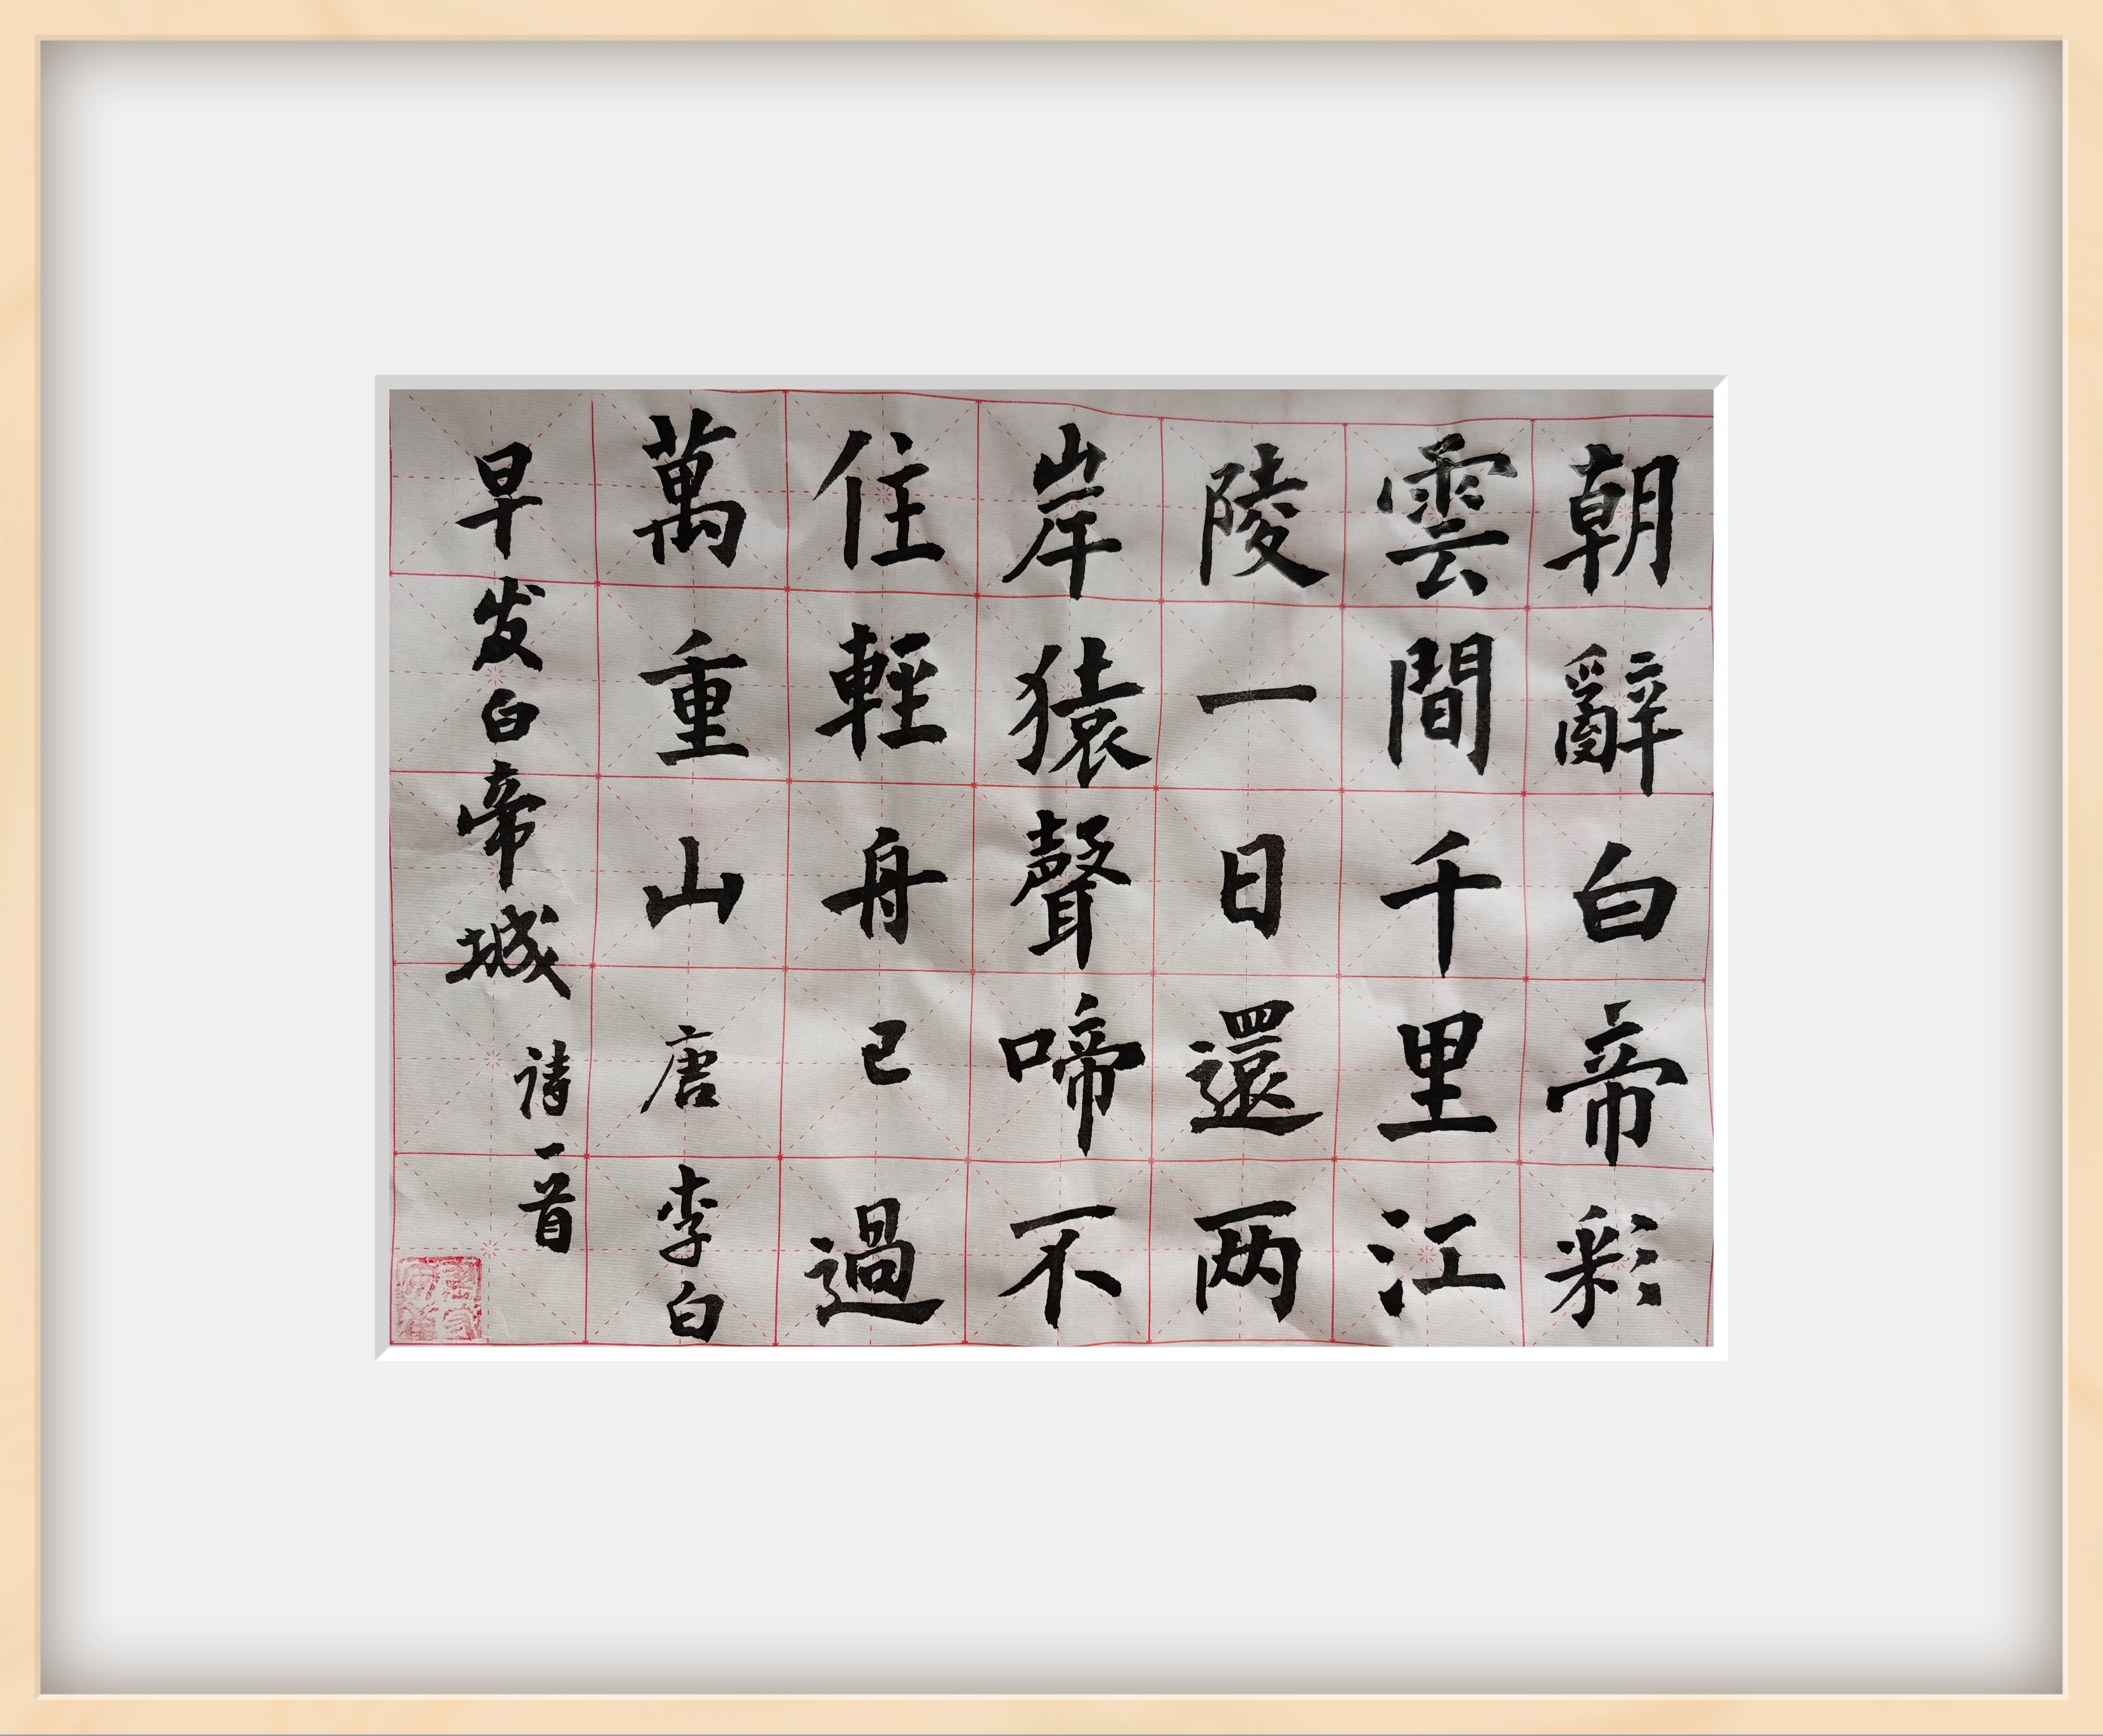 朝辭白帝彩
雲間千里江
陵一日還两
岸猿聲啼不
住輕舟已過
萬重山唐李白
早发白帝城
詩一首